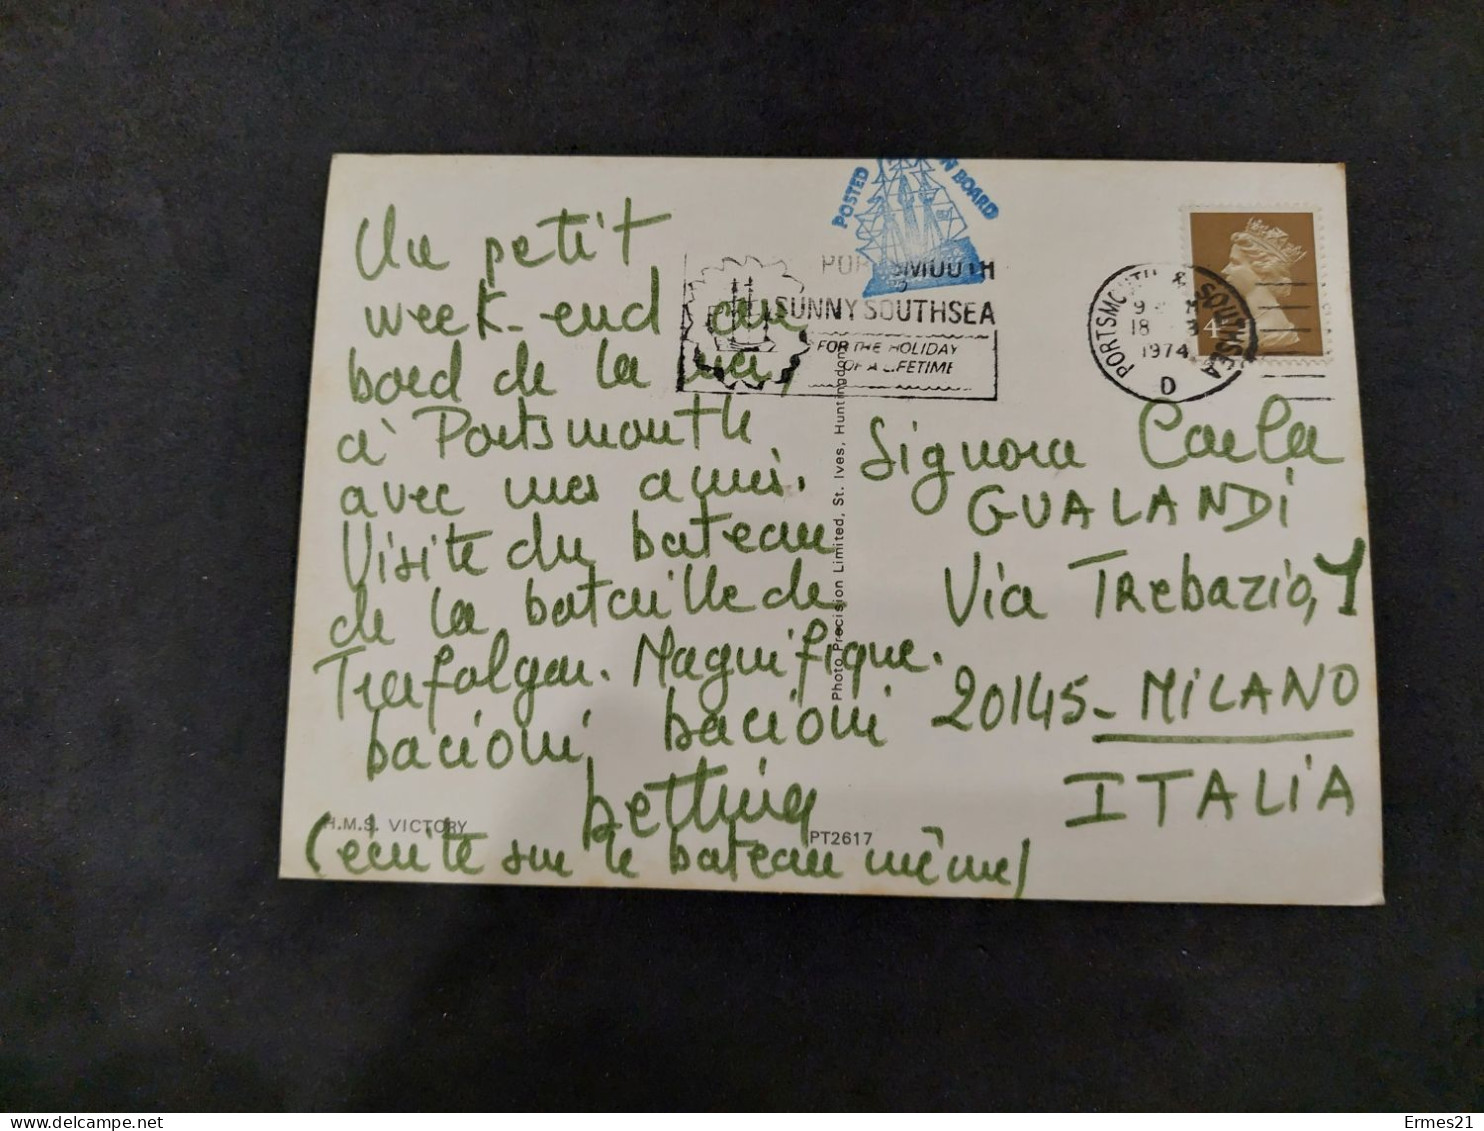 Un petit
week-end au
bord de la mer,
à Portsmouth
avec mes amis.
Visite du bateau
de la bataille de
Trafalgar. Magnifique.
bacioni bacioni
bettina
(écrite sur le bateau même)
H.M.S. VICTORY
PT2617
Photo Precision Limited, St. Ives, Huntingdon
POSTED ON BOARD
PORTSMOUTH
SUNNY SOUTHSEA
FOR THE HOLIDAY
OF A LIFETIME
PORTSMOUTH & SOUTHSEA
18
1974
D
4
Signora Carla
GUALANDI
Via Trebazio, 1
20145 - MILANO
ITALIA
Ermes21